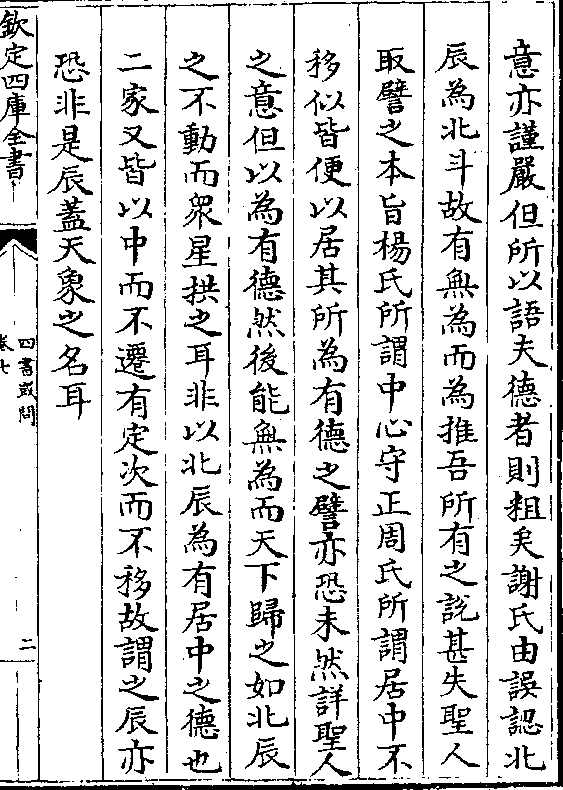 意亦謹嚴但所以語夫德者則粗矣謝氏由誤認北
辰為北斗故有無為而為推吾所有之說甚失聖人
取譬之本旨楊氏所謂中心守正周氏所謂居中不
移似皆便以居其所為有德之譬亦恐未然詳聖人
之意但以為有德然後能無為而天下歸之如北辰
之不動而衆星拱之耳非以北辰為有居中之德也
二家又皆以中而不遷有定次而不移故謂之辰亦
恐非是辰蓋天象之名耳
欽定四庫全書
四書或問
卷七
二